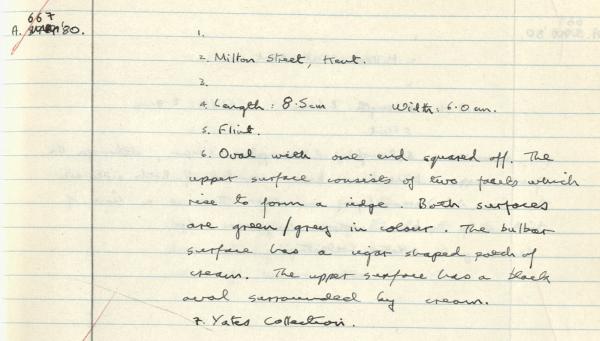 667
A. '80.
1.
2. Milton Street, Kent.
3.
4. Length: 8.5cm Width: 6.0cm.
5. Flint.
6. Oval with one end squared off. The
upper surface consists of two facets which
rise to form a ridge. Both surfaces
are green/grey in colour. The bulbar
surface has a cigar shaped patch of
cream. The upper surface has a black
oval surrounded by cream.
7. Yates Collection.